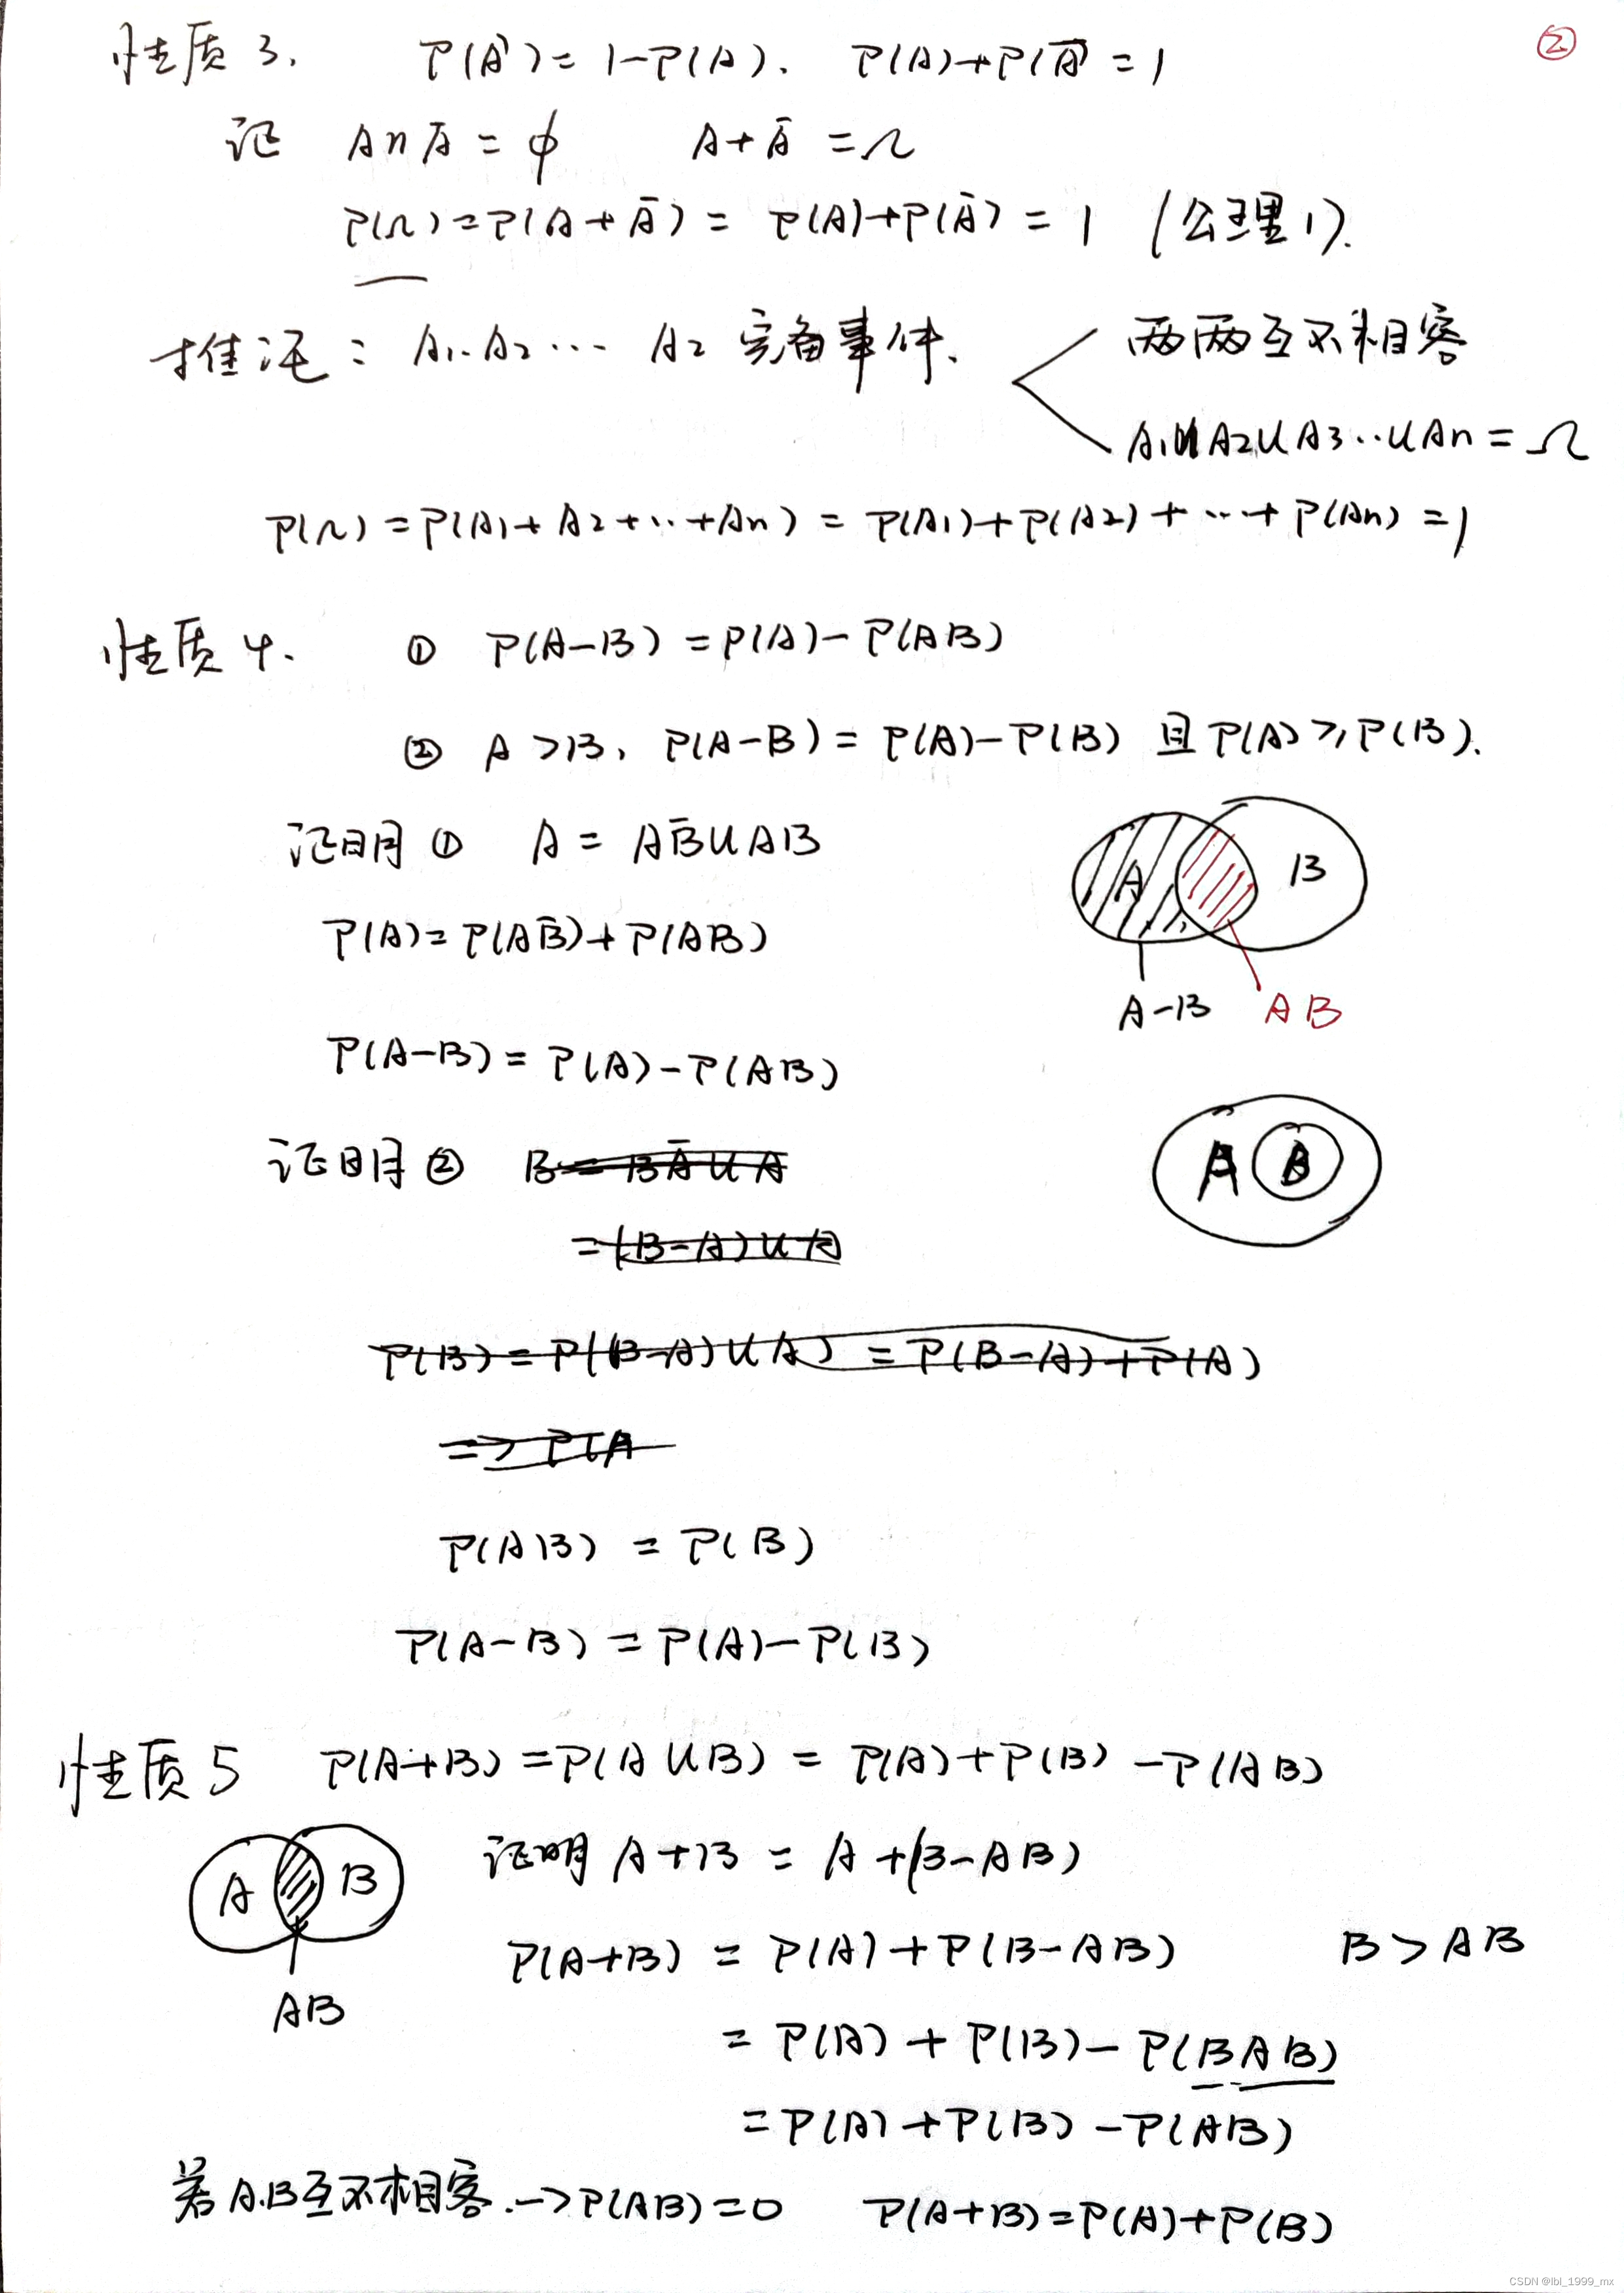 ②
性质3. P(Ā)=1-P(A). P(A)+P(Ā)=1
证 A∩Ā=φ A+Ā=Ω
P(Ω)=P(A+Ā)=P(A)+P(Ā)=1 (公理1).
推论: A₁.A₂… A₂ 完备事件. 两两互不相容
A₁∪A₂∪A₃…∪An=Ω
P(Ω)=P(A₁+A₂+…+An)=P(A₁)+P(A₂)+…+P(An)=1
性质4. ① P(A-B)=P(A)-P(AB)
② A>B, P(A-B)=P(A)-P(B) 且P(A)≥P(B).
证明① A=AB̄∪AB
A B
P(A)=P(AB̄)+P(AB)
A-B AB
P(A-B)=P(A)-P(AB)
证明② B=BĀ∪A
A B
=(B-A)∪A
P(B)=P((B-A)∪A)=P(B-A)+P(A)
=>P(A
P(AB)=P(B)
P(A-B)=P(A)-P(B)
性质5 P(A+B)=P(A∪B)=P(A)+P(B)-P(AB)
证明 A+B=A+(B-AB)
A B
P(A+B)=P(A)+P(B-AB) B>AB
AB
=P(A)+P(B)-P(BAB)
=P(A)+P(B)-P(AB)
若A.B互不相容.->P(AB)=0 P(A+B)=P(A)+P(B)
CSDN @lbl_1999_mx